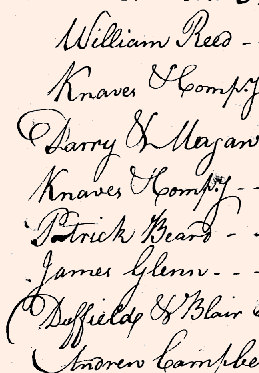 William Reed -
Knaves & Comp.y
Darry & Magaw
Knaves & Comp.y - -
Patrick Beard - -
James Glenn - - -
Duffield & Blair
Andrew Campbe